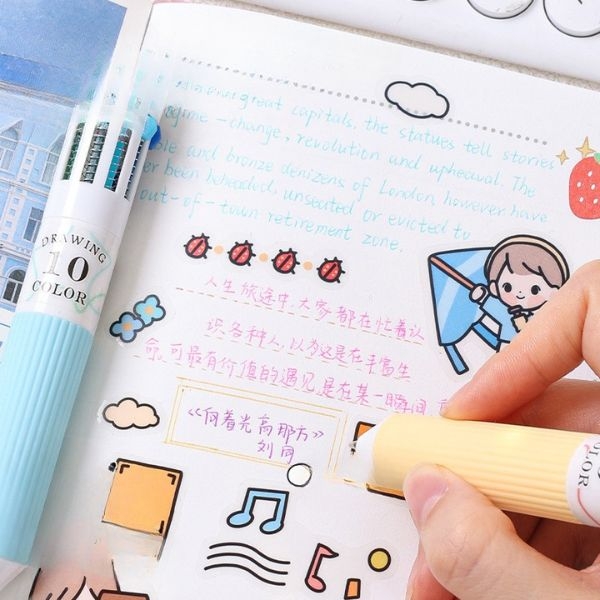 great capitals, the statues tell stories
regime-change, revolution and upheaval. The
and bronze denizens of London however have
been beheaded, unseated or evicted to
out-of-town retirement zone.
人生旅途中,大家都在忙着认
识各种人,以为这是在丰富生
命,可最有价值的遇见是在某一瞬间
《向着光亮那方》
刘同
DRAWING
10
COLOR
COLOR